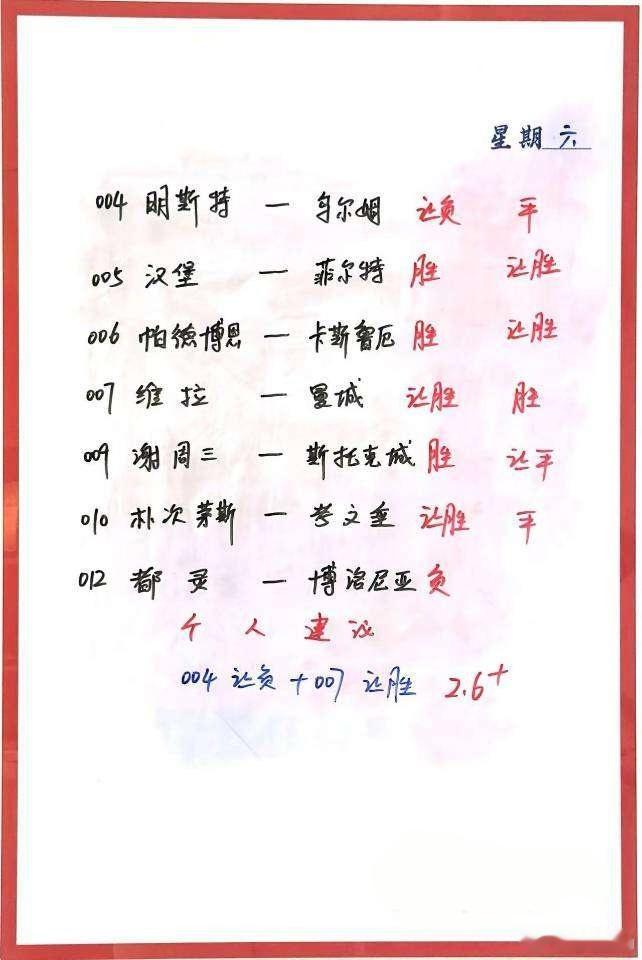 星期六
004 明斯特 — 乌尔姆 让负 平
005 汉堡 — 菲尔特 胜 让胜
006 帕德博恩 — 卡斯鲁厄 胜 让胜
007 维拉 — 曼城 让胜 胜
009 谢周三 — 斯托克城 胜 让平
010 朴次茅斯 — 考文垂 让胜 平
012 都灵 — 博洛尼亚 负
个人建议
004 让负 + 007 让胜 2.6+